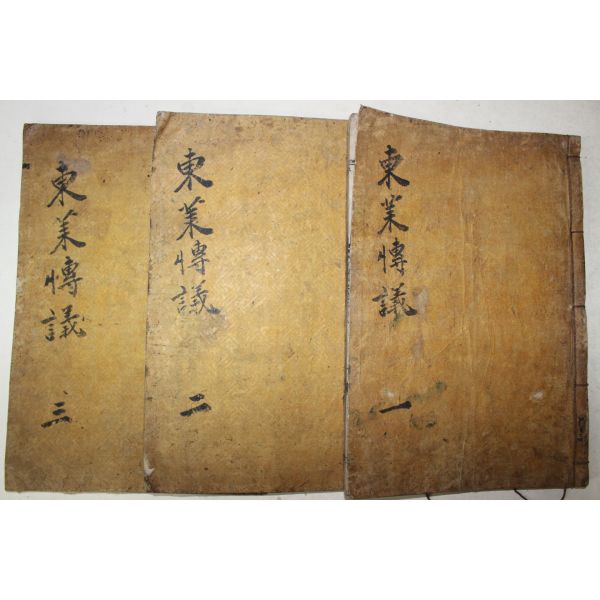 東莱愽議 一
東莱愽議 二
東莱愽議 三